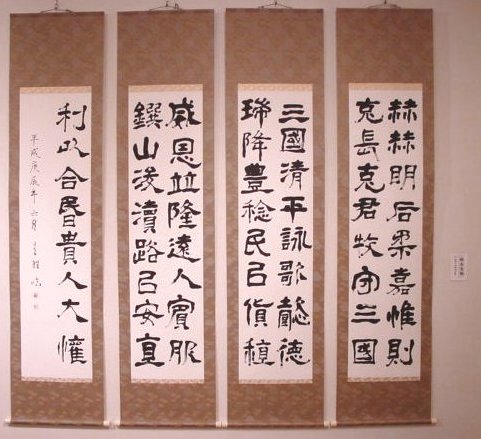 赫赫明后柔嘉惟則
克長克君牧守三國
三國清平詠歌懿德
瑞降豊稔民㠯貨稙
威恩並隆遠人賓服
鐉山浚瀆路㠯安直
利合貴人大懽
平成庚辰年六月 臨